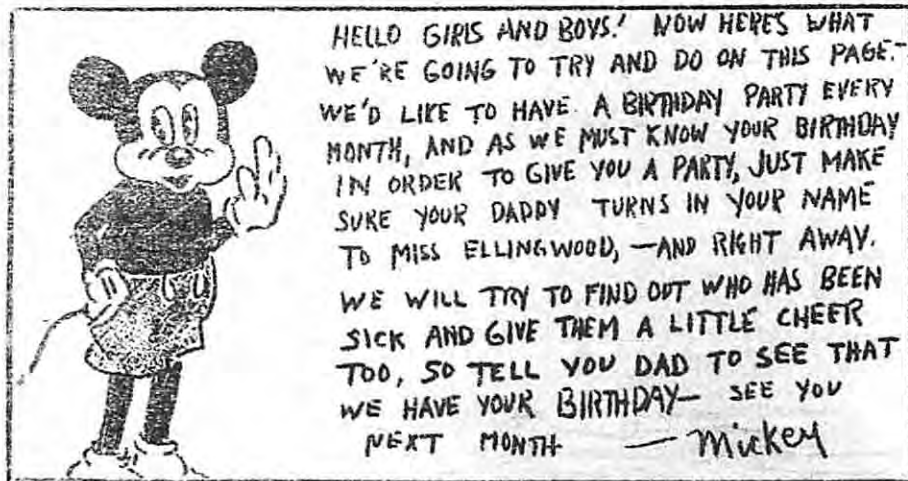 HELLO GIRLS AND BOYS! NOW HERE'S WHAT
WE'RE GOING TO TRY AND DO ON THIS PAGE.-
WE'D LIKE TO HAVE A BIRTHDAY PARTY EVERY
MONTH, AND AS WE MUST KNOW YOUR BIRTHDAY
IN ORDER TO GIVE YOU A PARTY, JUST MAKE
SURE YOUR DADDY TURNS IN YOUR NAME
TO MISS ELLINGWOOD, —AND RIGHT AWAY.
WE WILL TRY TO FIND OUT WHO HAS BEEN
SICK AND GIVE THEM A LITTLE CHEER
TOO, SO TELL YOU DAD TO SEE THAT
WE HAVE YOUR BIRTHDAY— SEE YOU
NEXT MONTH — Mickey